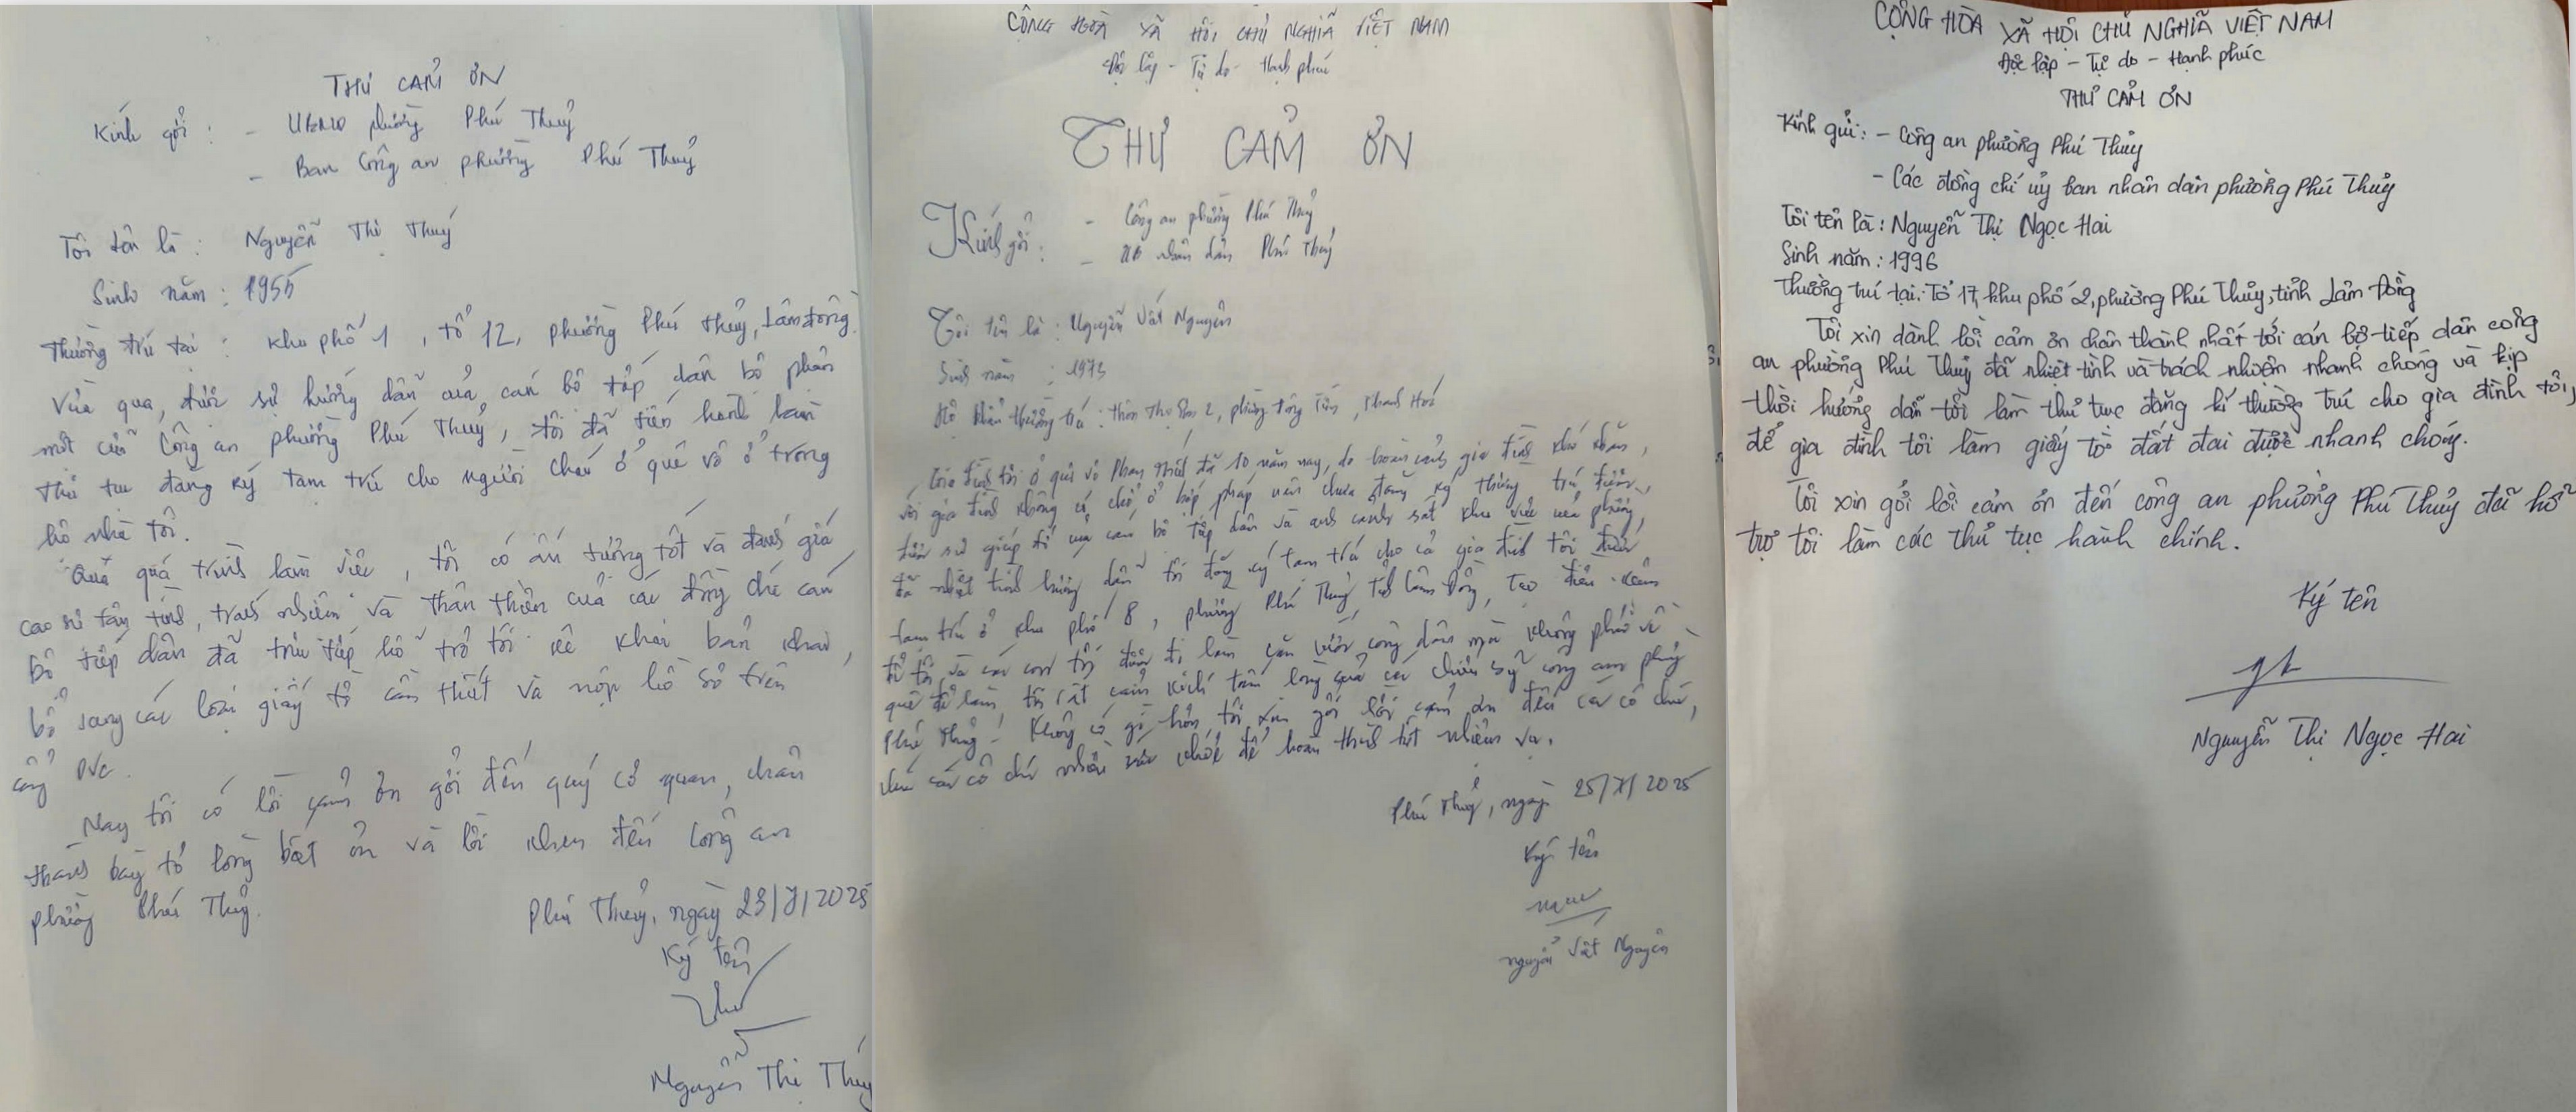 THƯ CẢM ƠN
Kính gởi : - UBND phường Phú Thuỷ
- Ban Công an phường Phú Thuỷ
Tôi tên là : Nguyễn Thị Thuý
Sinh năm : 1955
Thường trú tại : Khu phố 1 , tổ 12, phường Phú Thuỷ, Lâm đồng.
Vừa qua, được sự hướng dẫn của cán bộ tiếp dân bộ phận
một cửa Công an phường Phú Thuỷ, tôi đã tiến hành làm
thủ tục đăng ký tạm trú cho người cháu ở quê vô ở trong
hộ nhà tôi.
Quá trình làm việc , tôi có ấn tượng tốt và đánh giá
cao sự tận tình, trách nhiệm và thân thiện của các đồng chí cán
bộ tiếp dân đã trực tiếp hỗ trợ tôi kê khai bản khai,
bổ sung các loại giấy tờ cần thiết và nộp hồ sơ trên
cổng DVC.
Nay tôi có lời cảm ơn gởi đến quý cơ quan, chân
thành bày tỏ lòng biết ơn và lời khen đến Công an
phường Phú Thuỷ.
Phú Thuỷ, ngày 23/7/2025
Ký tên
Nguyễn Thị Thúy
CỘNG HOÀ XÃ HỘI CHỦ NGHĨA VIỆT NAM
Độc lập - Tự do - Hạnh phúc
THƯ CẢM ƠN
Kính gởi : - Công an phường Phú Thuỷ
- UB nhân dân Phú Thuỷ
Tôi tên là : Nguyễn Vát Nguyên
Sinh năm : 1973
Hộ khẩu thường trú : thôn Thọ 2, phường Đông Tiến , Thanh Hoá
Gia đình tôi ở quê vô Phan Thiết đã 10 năm nay, do hoàn cảnh gia đình khó khăn,
với gia đình không có chỗ ở hợp pháp nên chưa đăng ký thường trú được,
được sự giúp đỡ của cán bộ tiếp dân và anh cảnh sát khu vực của phường,
đã nhiệt tình hướng dẫn tôi đăng ký tạm trú cho cả gia đình tôi được
tạm trú ở khu phố 8, phường Phú Thuỷ, Tỉnh Lâm Đồng, tạo điều kiện
để tôi và các con tôi được đi làm căn cước công dân mà không phải về
quê để làm, tôi rất cảm kích tấm lòng của các chiến sỹ công an phường
Phú Thuỷ! Không có gì hơn tôi xin gởi lời cảm ơn đến các cô chú,
chúc các cô chú nhiều sức khỏe để hoàn thành tốt nhiệm vụ.
Phú Thuỷ, ngày 25/7/2025
Ký tên
nguyễn Vát Nguyên
CỘNG HÒA XÃ HỘI CHỦ NGHĨA VIỆT NAM
Độc lập - Tự do - Hạnh phúc
THƯ CẢM ƠN
Kính gửi: - Công an phường Phú Thuỷ
- Các đồng chí uỷ ban nhân dân phường Phú Thuỷ
Tôi tên là : Nguyễn Thị Ngọc Hai
Sinh năm : 1996
Thường trú tại: Tổ 17, khu phố 2, phường Phú Thuỷ, tỉnh Lâm Đồng
Tôi xin dành lời cảm ơn chân thành nhất tới cán bộ tiếp dân công
an phường Phú Thuỷ đã nhiệt tình và trách nhiệm nhanh chóng và kịp
thời hướng dẫn tôi làm thủ tục đăng kí thường trú cho gia đình tôi,
để gia đình tôi làm giấy tờ đất đai được nhanh chóng.
Tôi xin gởi lời cảm ơn đến công an phường Phú Thuỷ đã hỗ
trợ tôi làm các thủ tục hành chính.
Ký tên
Nguyễn Thị Ngọc Hai